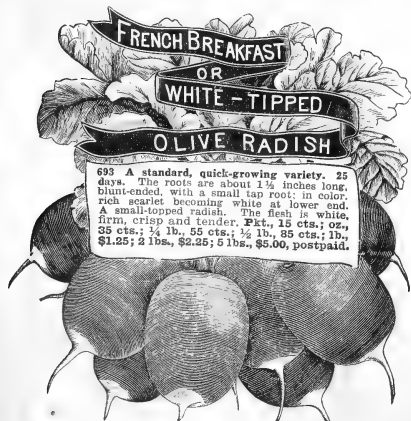 FRENCH BREAKFAST
OR
WHITE-TIPPED
OLIVE RADISH
693 A standard, quick-growing variety. 25
days. The roots are about 1½ inches long,
blunt-ended, with a small tap root; in color,
rich scarlet becoming white at lower end.
A small-topped radish. The flesh is white,
firm, crisp and tender. Pkt., 15 cts.; oz.,
35 cts.; ¼ lb., 55 cts.; ½ lb., 85 cts.; lb.,
$1.25; 2 lbs., $2.25; 5 lbs., $5.00, postpaid.